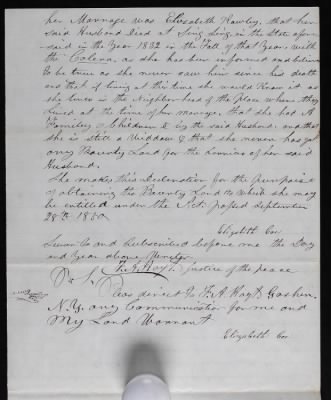 her Marriage was Elizabeth Hawley, that her
said Husband Died at Sing Sing in the State afore
said in the Year 1832 in the Fall of that Year with
the Colera, as she has been informed and believes
to be true as she never saw him since his death
and that if living at this time she would Know it as
she lives in the Neighborhood of the Place where they
Lived at the time of her marriage, that she had A
Family of Children by the said Husband. and that
she is still a Widdow & that she never has got
any Bounty Land for the Services of her said
Husband.
She makes this Declaration for the Purpose
of obtaining the Bounty Land to Which she may
be entitled under the Act passed September
28th 1850
Elizabeth Cox
Sworn to and Subscribed before me the Day
and year above Written
F. A. Hoyt Justice of the peace
P. S. Pleas direct to F. A. Hoyt Goshen
N.Y. any Communication for me and
My Land Warrant
Elizabeth Cox